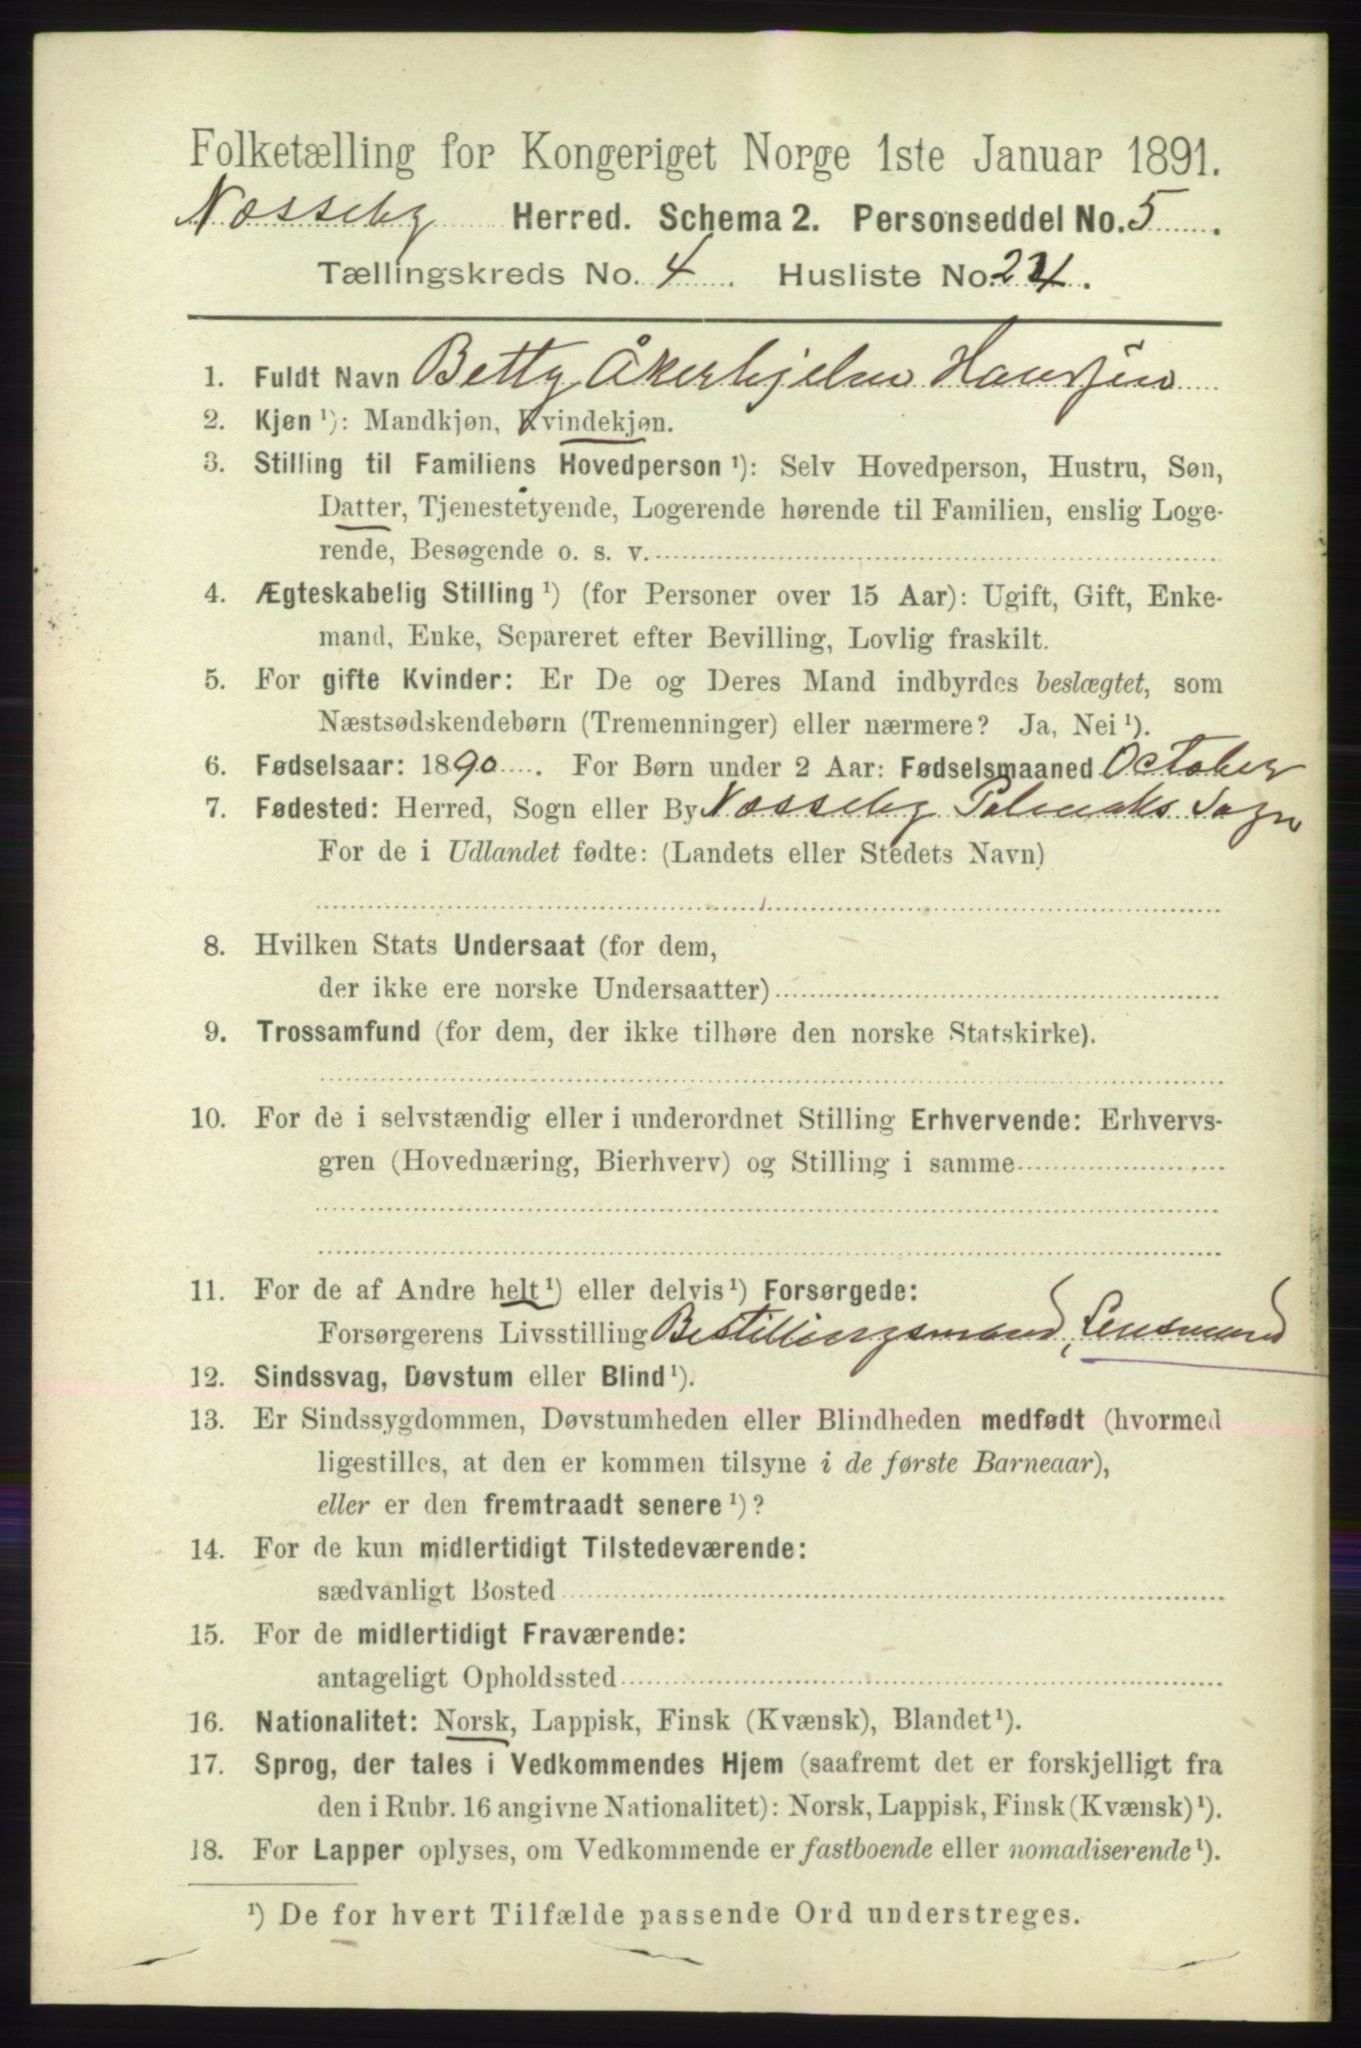 Folketælling for Kongeriget Norge 1ste Januar 1891.
Næsseby Herred. Schema 2. Personseddel No. 5.
Tællingskreds No. 4. Husliste No. 24.
1. Fuldt Navn Betty Åkerhjelm Hansen
2. Kjøn ¹): Mandkjøn, Kvindekjøn.
3. Stilling til Familiens Hovedperson ¹): Selv Hovedperson, Hustru, Søn,
Datter, Tjenestetyende, Logerende hørende til Familien, enslig Loge-
rende, Besøgende o. s. v.
4. Ægteskabelig Stilling ¹) (for Personer over 15 Aar): Ugift, Gift, Enke-
mand, Enke, Separeret efter Bevilling, Lovlig fraskilt.
5. For gifte Kvinder: Er De og Deres Mand indbyrdes beslægtet, som
Næstsødskendebørn (Tremenninger) eller nærmere? Ja, Nei ¹).
6. Fødselsaar: 1890. For Børn under 2 Aar: Fødselsmaaned October
7. Fødested: Herred, Sogn eller By Næsseby Polmaks Sogn
For de i Udlandet fødte: (Landets eller Stedets Navn)
8. Hvilken Stats Undersaat (for dem,
der ikke ere norske Undersaatter)
9. Trossamfund (for dem, der ikke tilhøre den norske Statskirke).
10. For de i selvstændig eller i underordnet Stilling Erhvervende: Erhvervs-
gren (Hovednæring, Bierhverv) og Stilling i samme
11. For de af Andre helt ¹) eller delvis ¹) Forsørgede:
Forsørgerens Livsstilling Bestillingsmand, Lensmand
12. Sindssvag, Døvstum eller Blind ¹).
13. Er Sindssygdommen, Døvstumheden eller Blindheden medfødt (hvormed
ligestilles, at den er kommen tilsyne i de første Barneaar),
eller er den fremtraadt senere ¹)?
14. For de kun midlertidigt Tilstedeværende:
sædvanligt Bosted
15. For de midlertidigt Fraværende:
antageligt Opholdssted
16. Nationalitet: Norsk, Lappisk, Finsk (Kvænsk), Blandet ¹).
17. Sprog, der tales i Vedkommendes Hjem (saafremt det er forskjelligt fra
den i Rubr. 16 angivne Nationalitet): Norsk, Lappisk, Finsk (Kvænsk) ¹).
18. For Lapper oplyses, om Vedkommende er fastboende eller nomadiserende ¹).
¹) De for hvert Tilfælde passende Ord understreges.